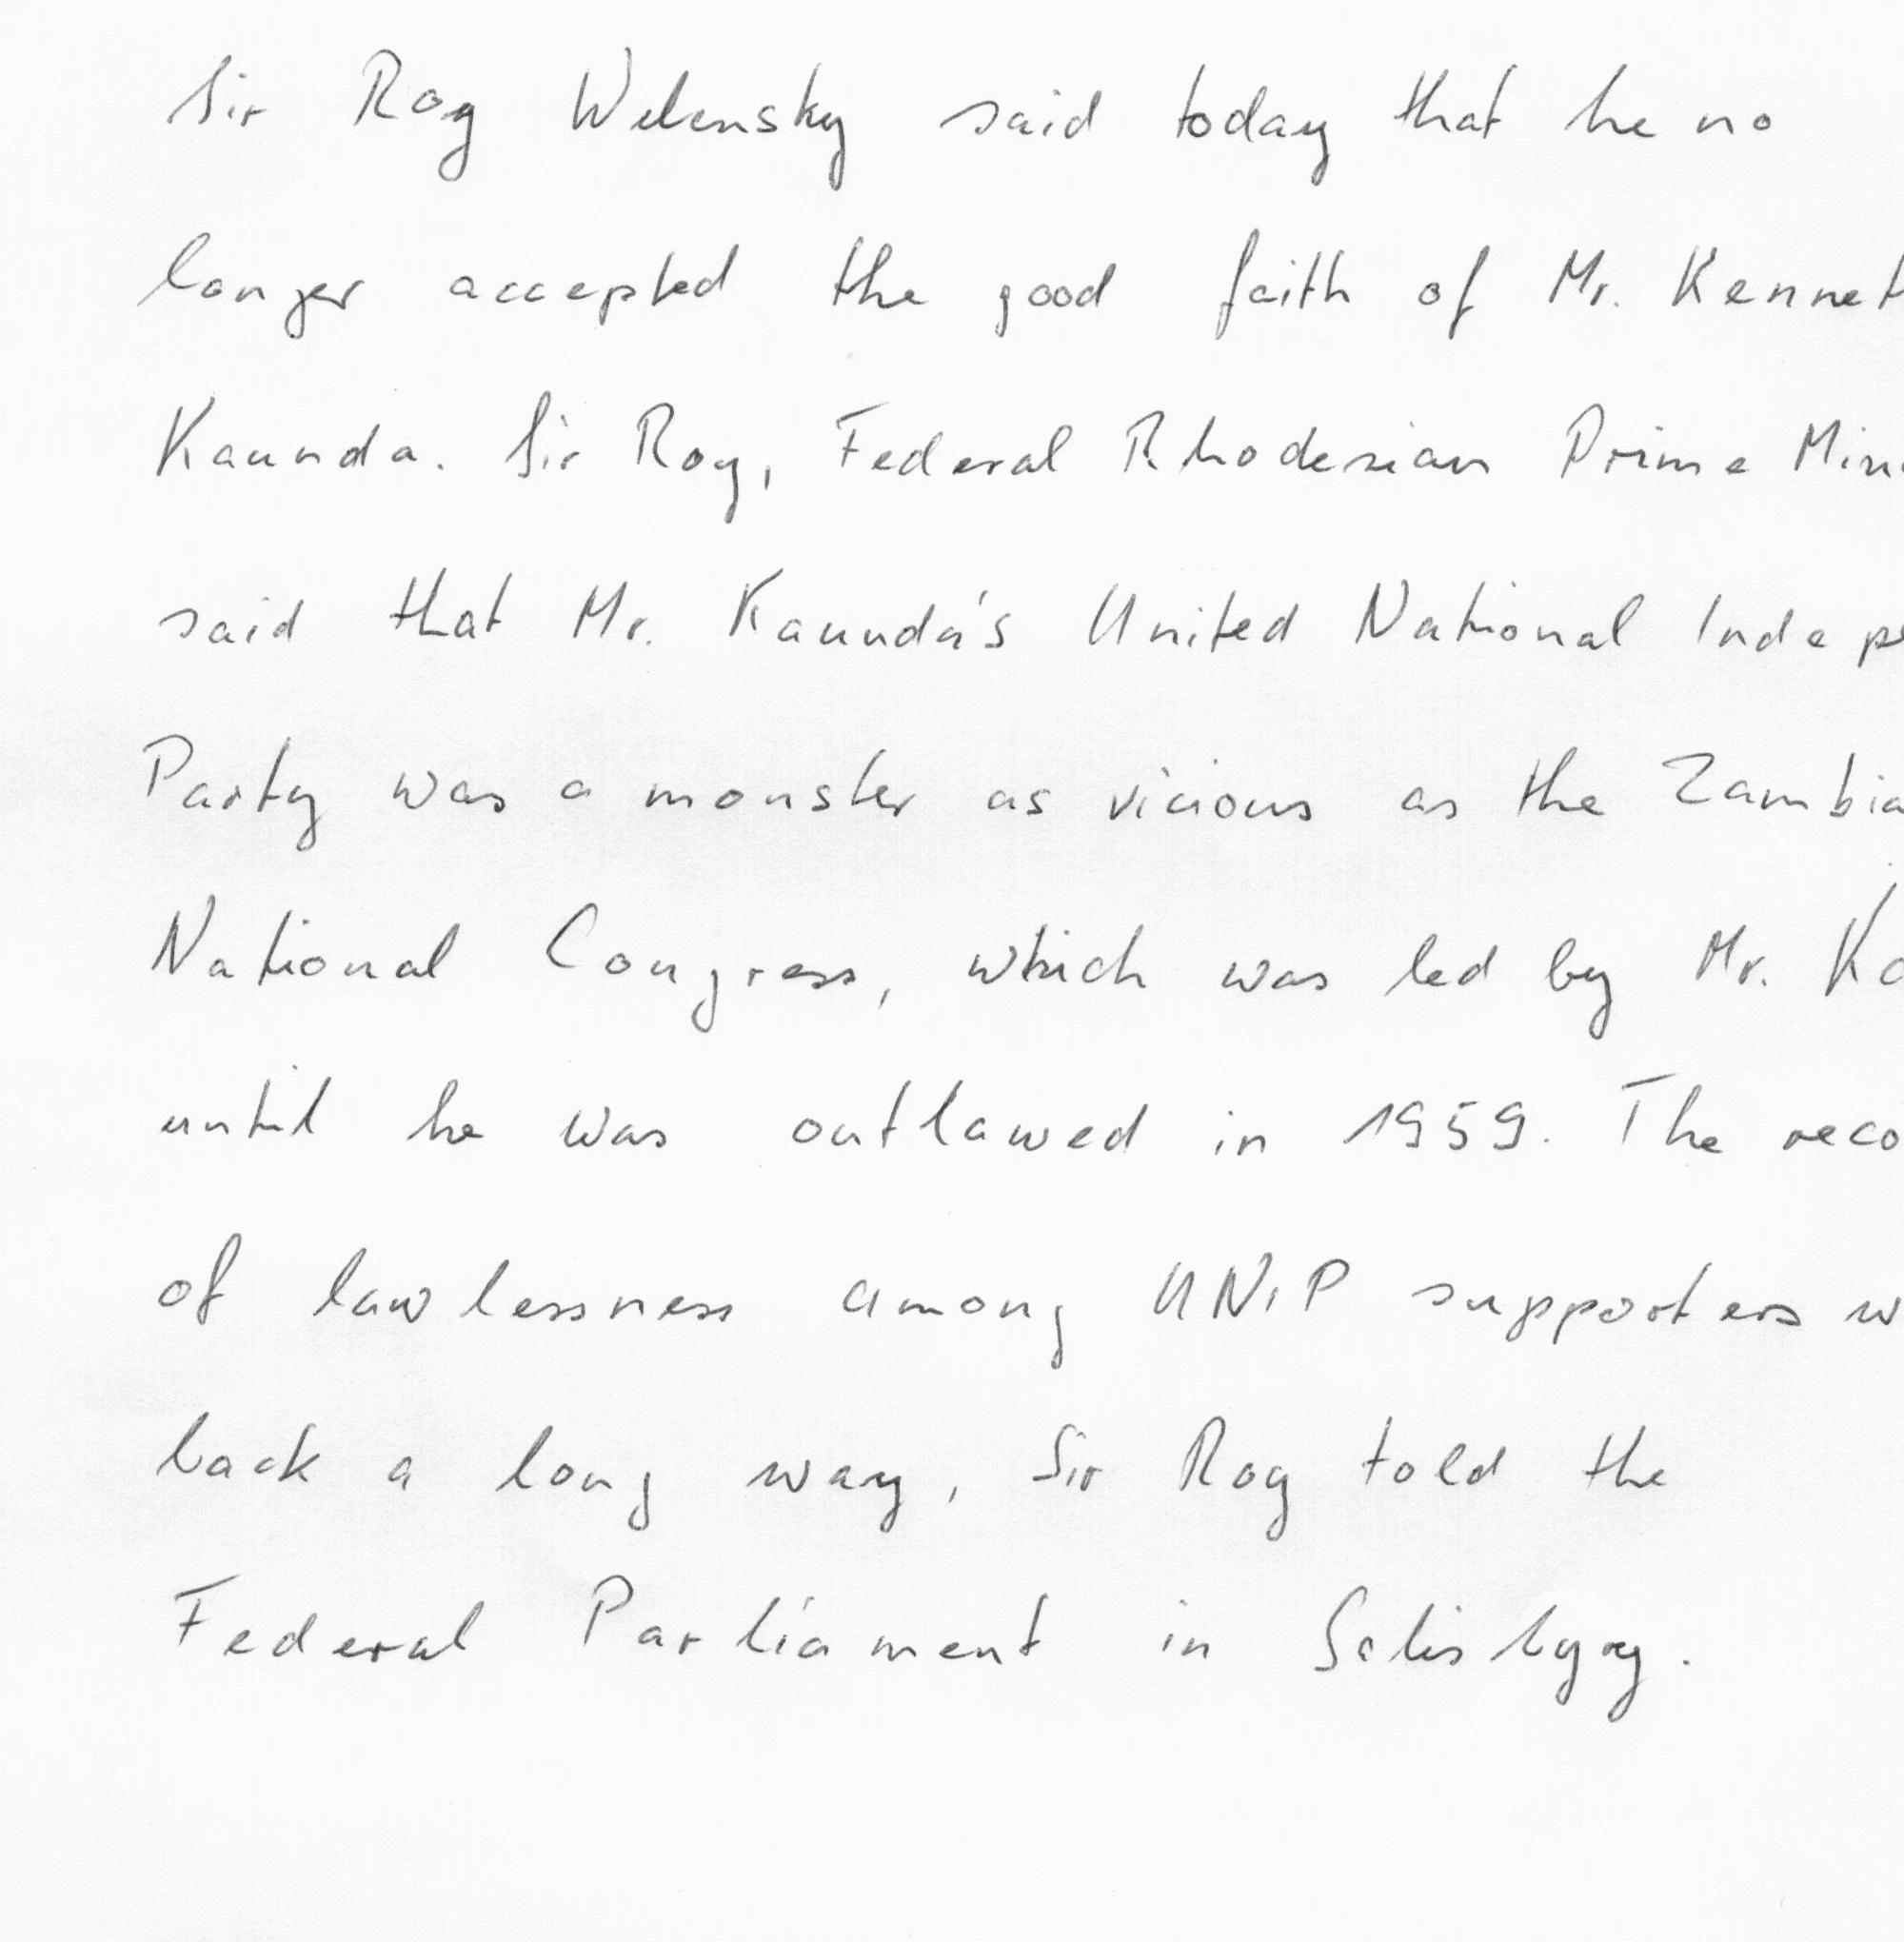 Sir Roy Welensky said today that he no
longer accepted the good faith of Mr. Kennet
Kaunda. Sir Roy, Federal Rhodesian Prime
said that Mr. Kaunda's United National
Party was a monster as vicious as the Zambia
National Congress, which was led by Mr.
until he was outlawed in 1959. The
of lawlessness among UNIP supporters
back a long way, Sir Roy told the
Federal Parliament in Salisbyry.